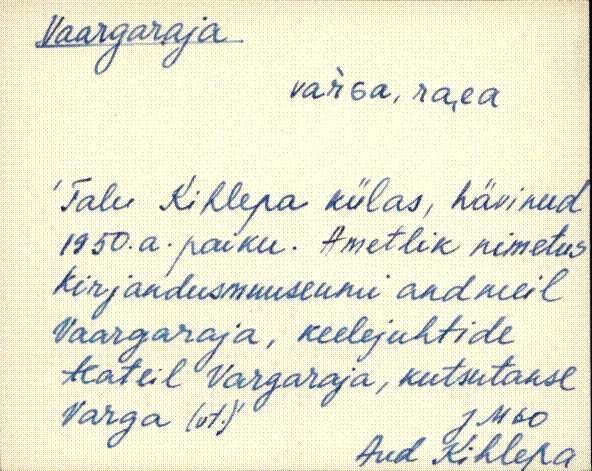 Vaargaraja
var̆Ga, ra,ea
'Talu Kihlepa külas, hävinud
1950.a. paiku. Ametlik nimetus
Kirjandusmuuseumi andmeil
Vaargaraja, keelejuhtide
teateil Vargaraja, kutsutakse
Varga (vt.)'
Aud Kihlepa